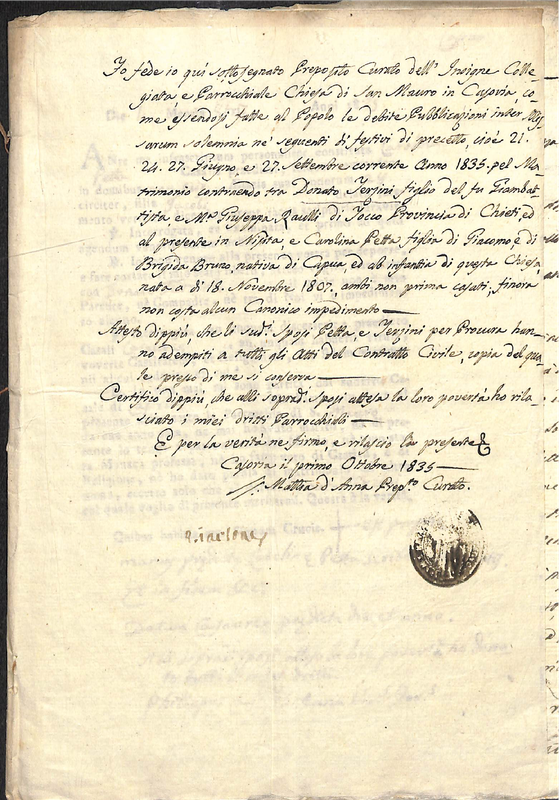 Fo fede io quì sottosegnato Preposito Curato dell' Insigne Colle
giata e Parrocchiale Chiesa di San Mauro in Casoria, co
me essendosi fatte al Popolo le debite Pubblicazioni inter Mis
sarum solemnia ne' seguenti dì festivi di precetto, cioè 21.
24. 27. Giugno, e 27. Settembre corrente Anno 1835. pel Ma
trimonio contraendo tra Donato Terzini, figlio del fu Giambat
tista e M.ª Giuseppa Raulli di Tocco Provincia di Chieti, ed
al presente in Nisita, e Carolina Petta, figlia di Giacomo, e di
Brigida Bruno, nativa di Capua, ed ab infantia di questa Chiesa,
nata a dì 18. Novembre 1807. ambi non prima casati, finora
non costa alcun Canonico impedimento
Attesto dippiù, che li sud.i Sposi Petta, e Terzini per Procura han
no adempiti a tutti gli Atti del Contratto Civile, copia del qua
le presso di me si conserva
Certifico dippiù, che alli soprad.i sposi attesa la loro povertà ho rila
sciato i miei dritti Parrocchiali
E per la verità ne firmo, e rilascio la presente
Casoria il primo Ottobre 1835
Mattia d'Anna Prep.to Curato.